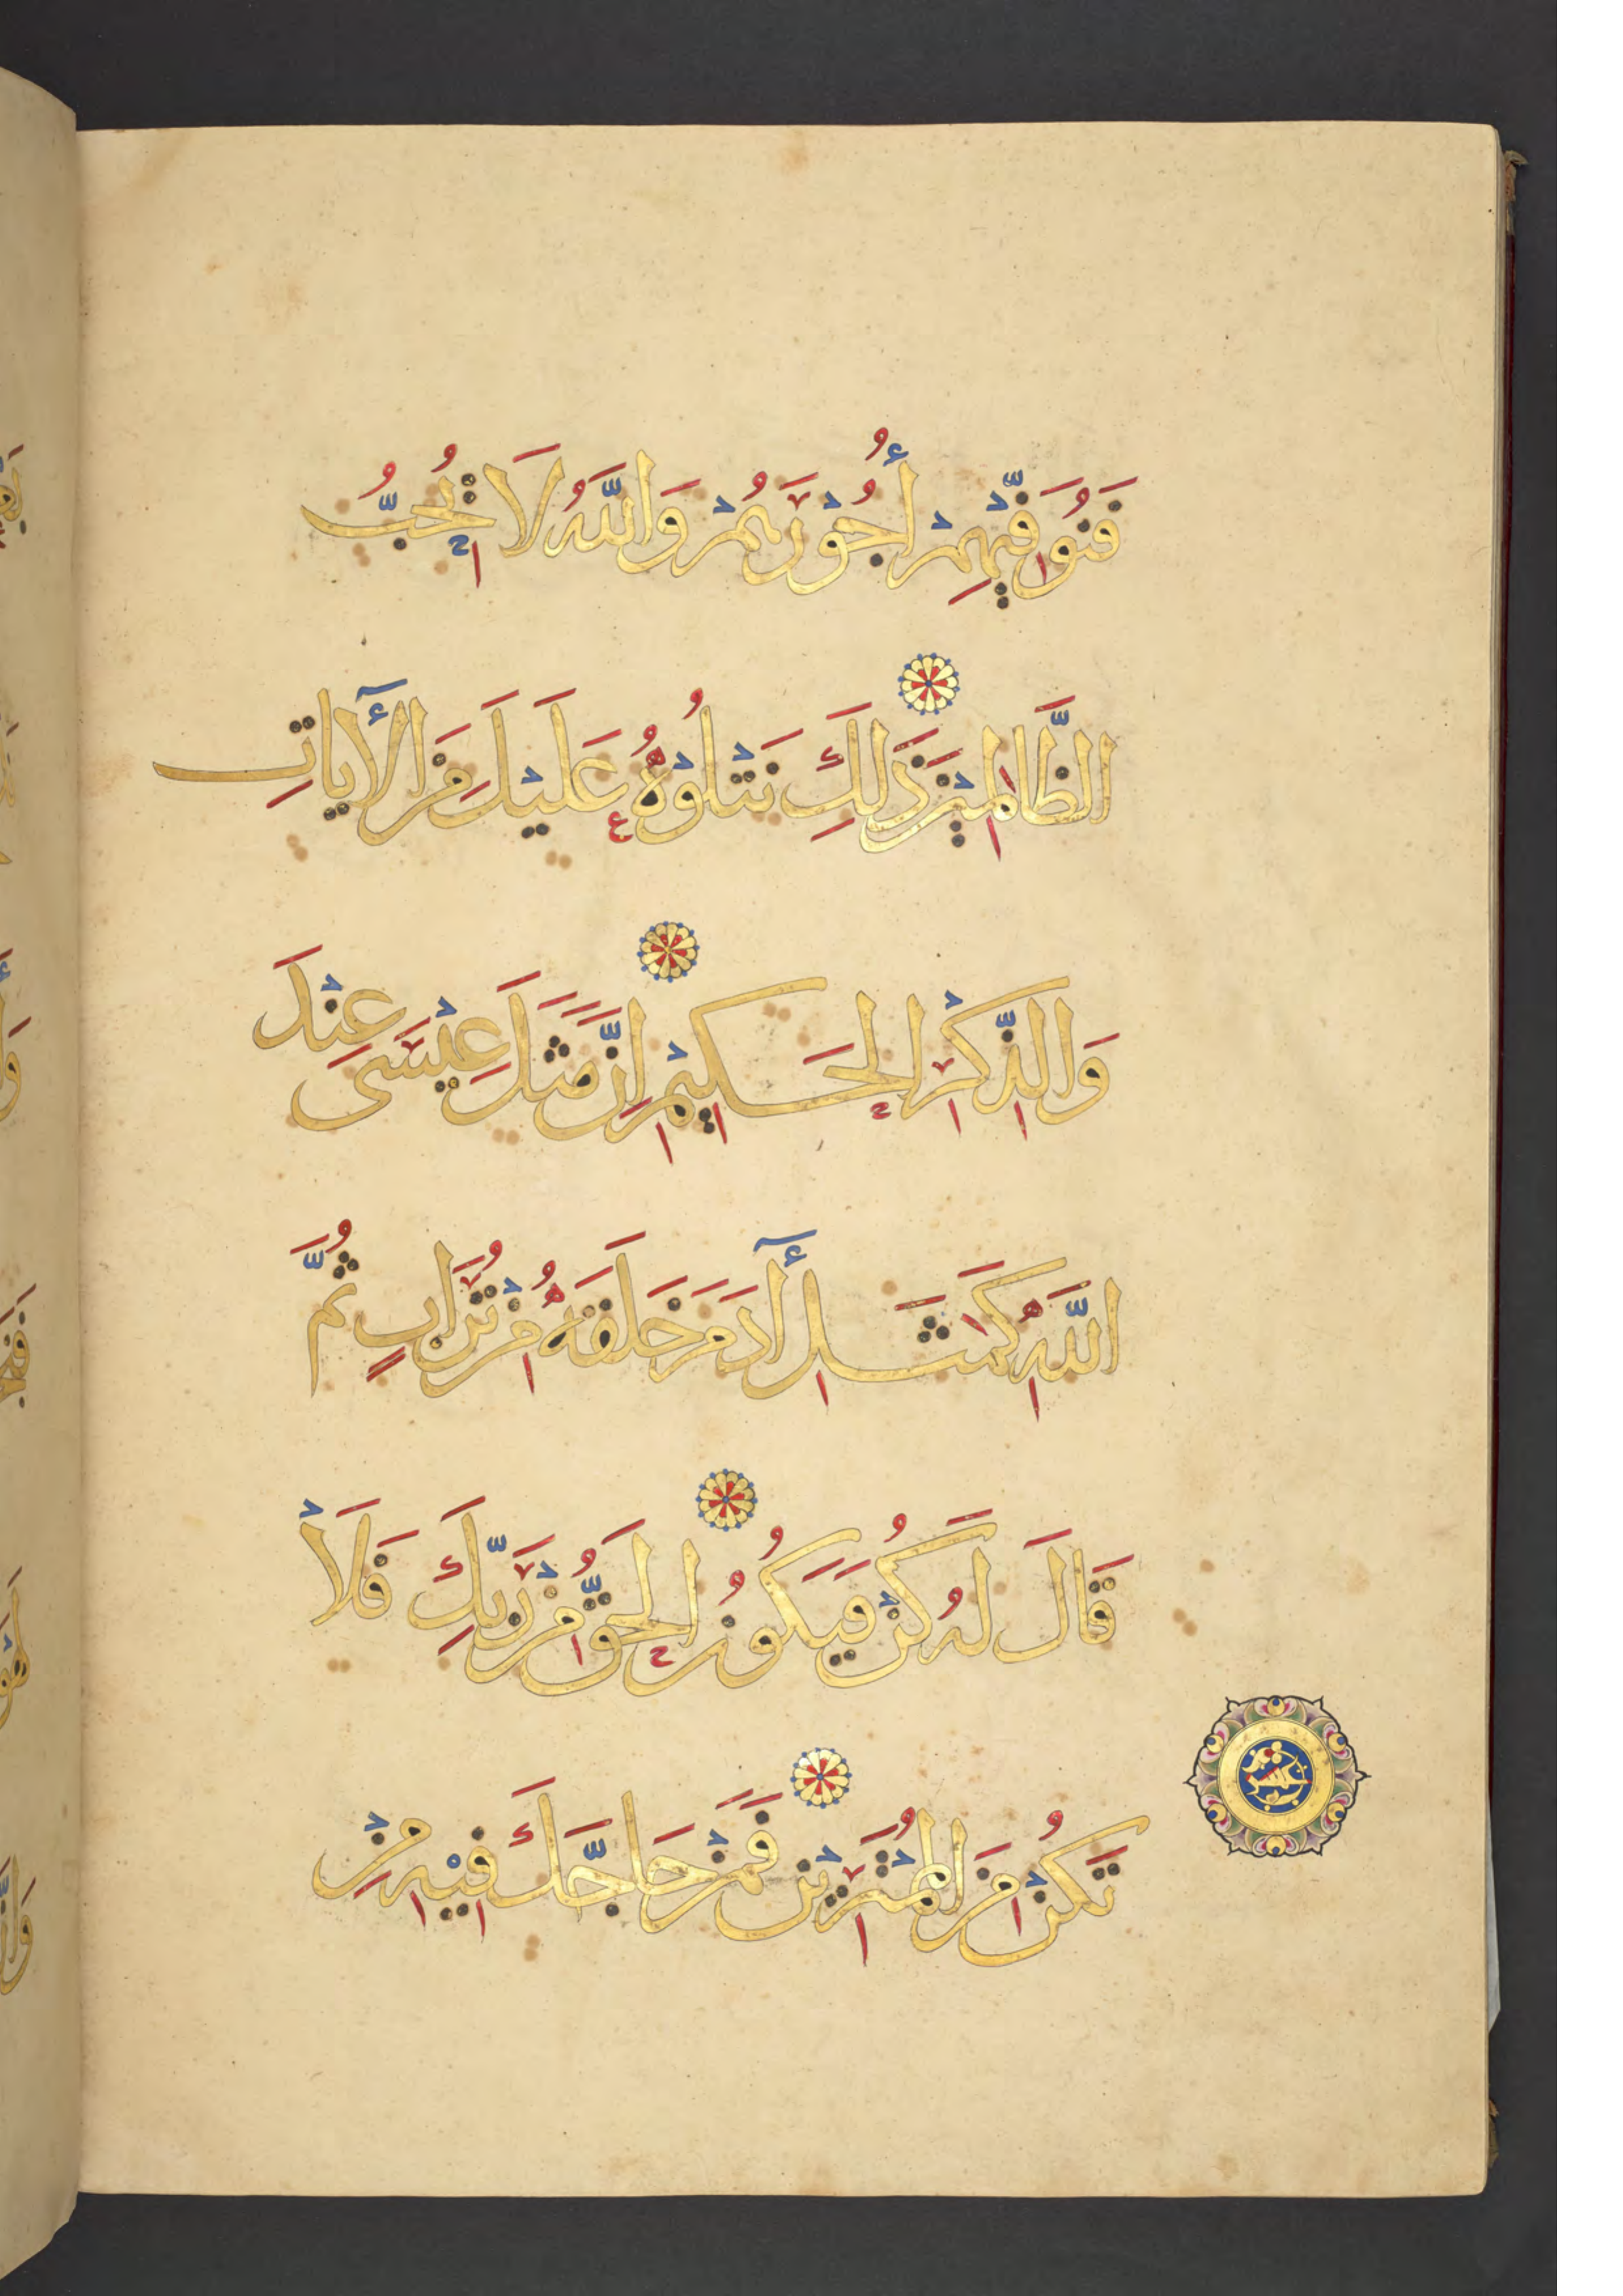 فَنُوَفِّيْهِمْ أُجُوْرَهُمْ وَاللَّهُ لَا يُحِبُّ
الظَّالِمِيْنَ ذَلِكَ نَتْلُوْهُ عَلَيْكَ مِنَ الْأٓيَاتِ
وَالذِّكْرِ الْحَكِيْمِ إِنَّ مَثَلَ عِيْسَى عِنْدَ
اللَّهِ كَمَثَلِ أٓدَمَ خَلَقَهُ مِنْ تُرَابٍ ثُمَّ
قَالَ لَهُ كُنْ فَيَكُونُ الْحَقُّ مِنْ رَبِّكَ فَلَا
تَكُنْ مِنَ الْمُمْتَرِيْنَ فَمَنْ حَاجَّكَ فِيْهِ مِنْ